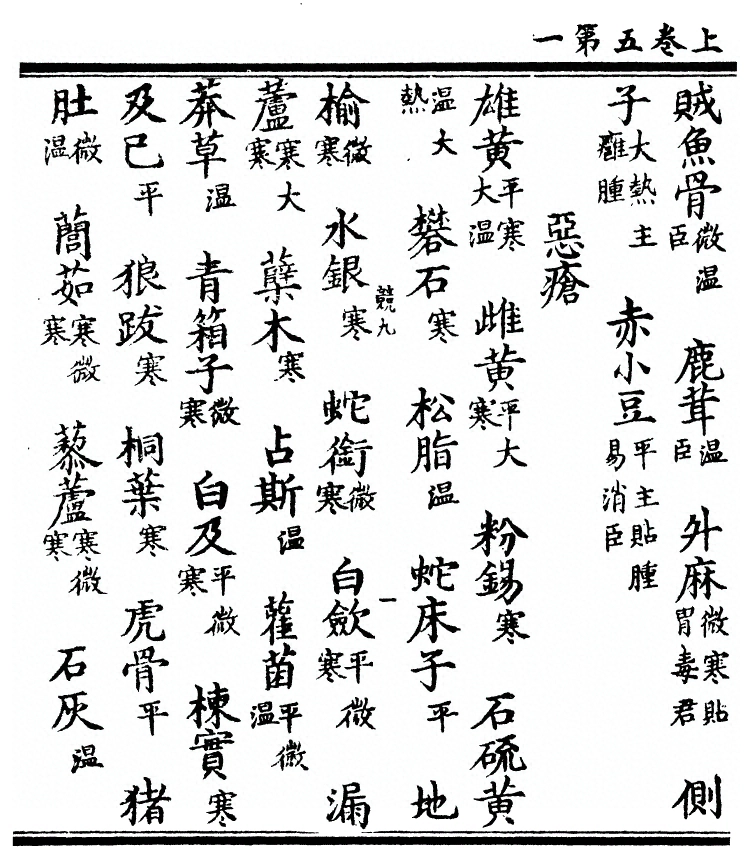 上巻五第一
賊魚骨微温臣 鹿茸温臣 外麻微寒貼胃毒君 側
子大熱主癰腫 赤小豆平主貼腫易消臣
惡瘡
雄黄平寒大温 雌黄平大寒 粉錫寒 石硫黄
温大熱 礬石寒 松脂温 蛇床子平 地
競九
一
榆微寒 水銀寒 蛇銜微寒 白歛平微寒 漏
蘆寒大寒 蘗木寒 占斯温 雚菌平微温
莽草温 青箱子微寒 白及平微寒 楝實寒
及已平 狼跋寒 桐葉寒 虎骨平 猪
肚微温 䕡茹寒微寒 藜蘆寒微寒 石灰温